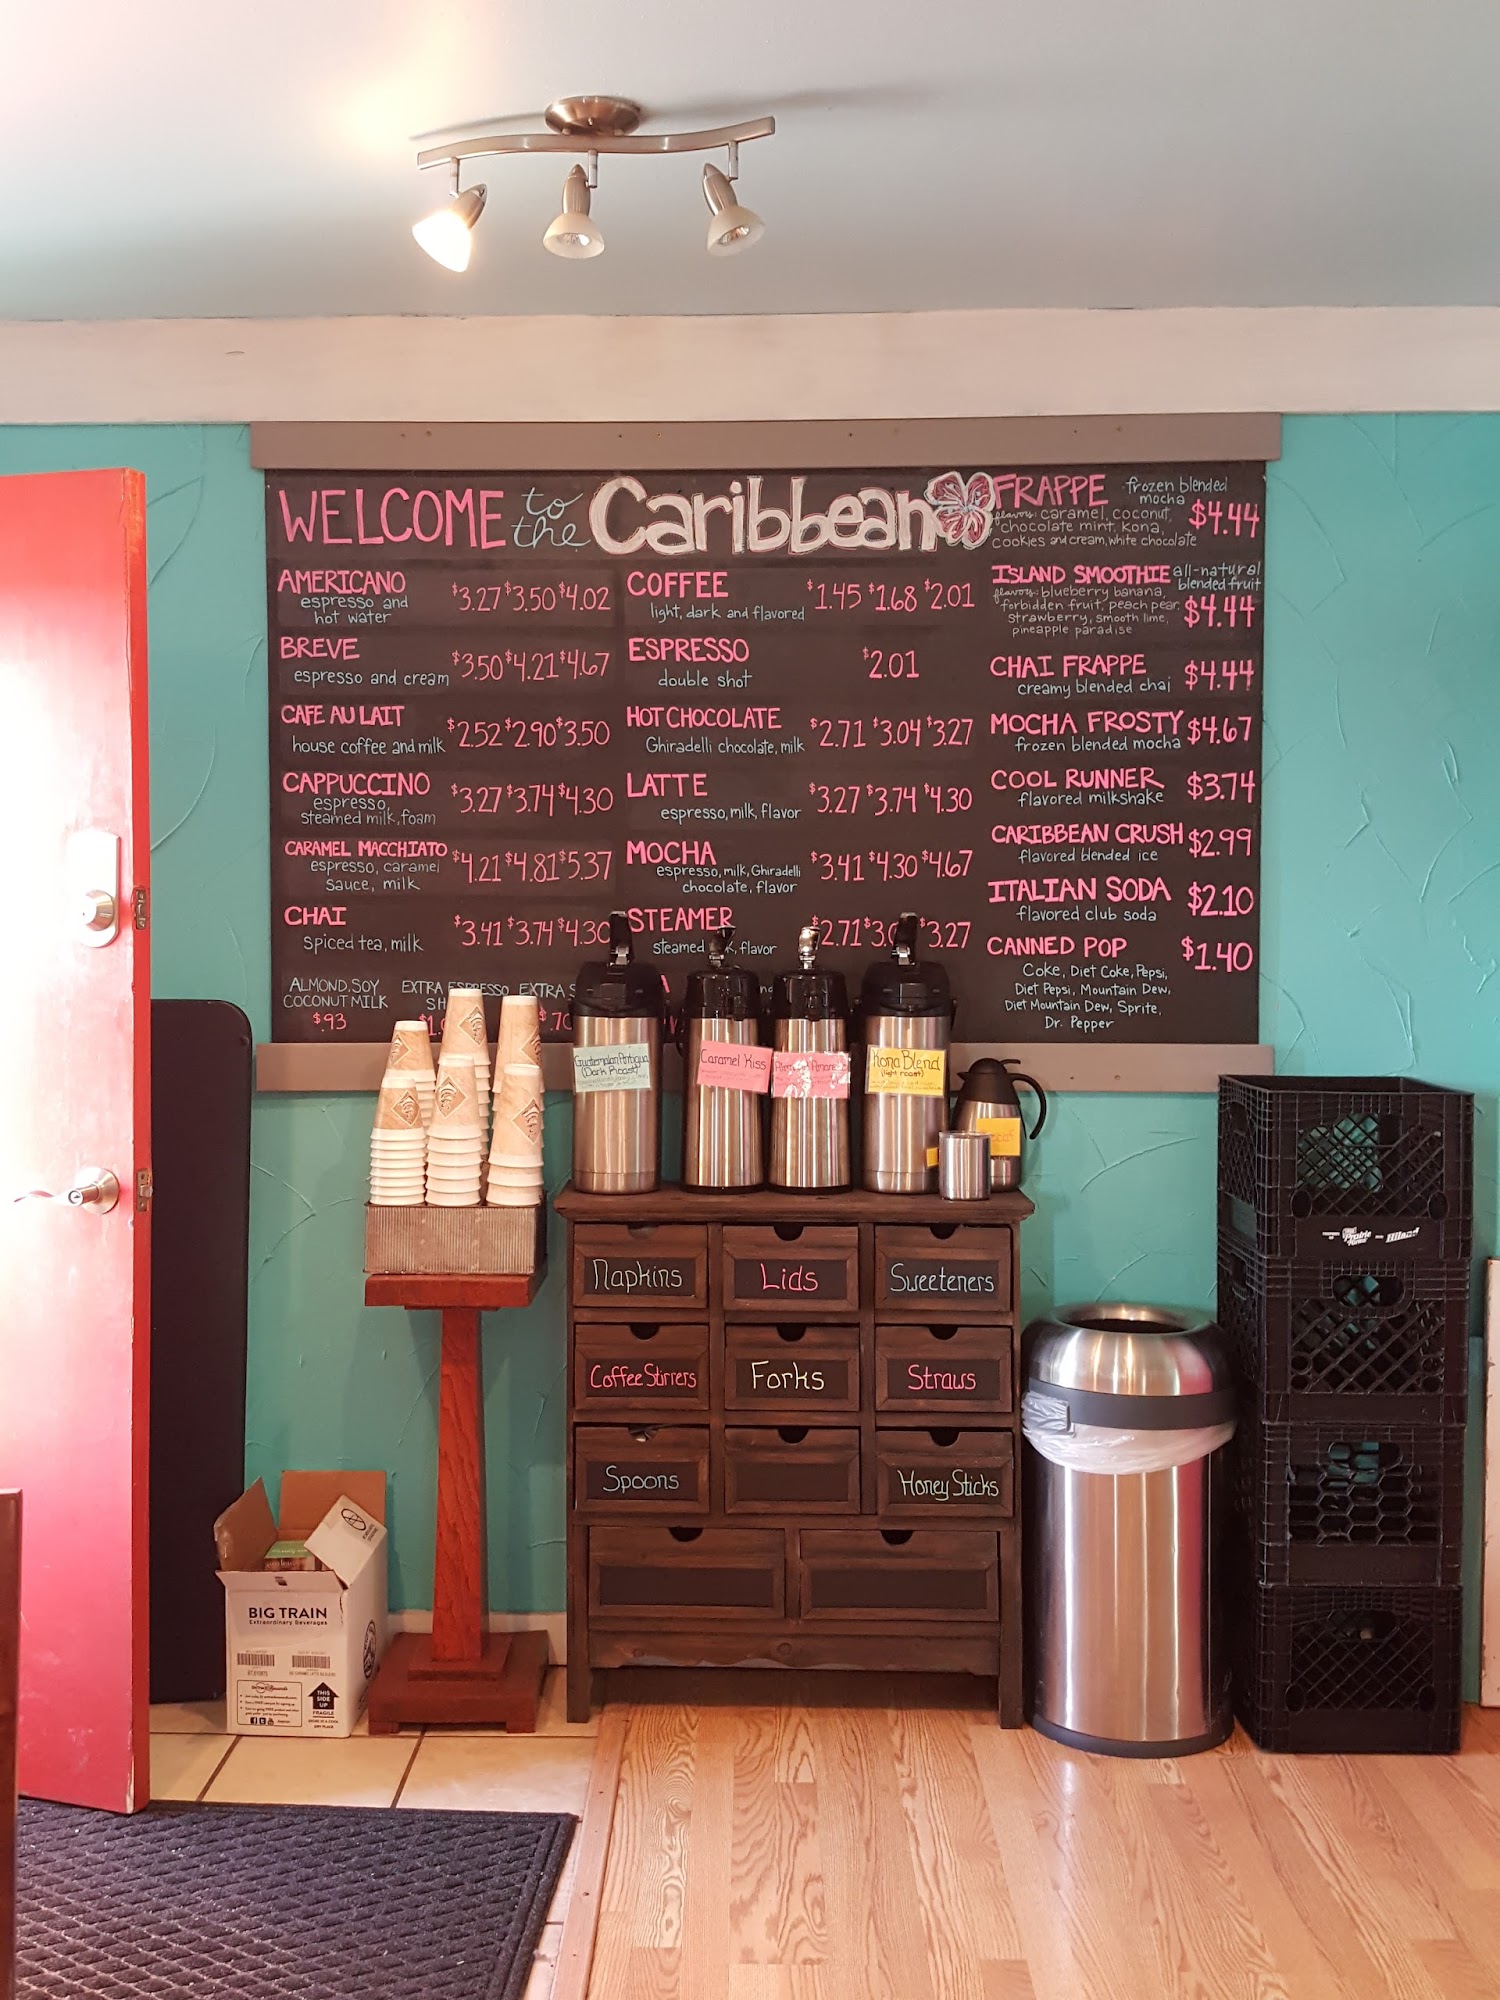 WELCOME to the Caribbean
AMERICANO $3.27 $3.50 $4.02
espresso and
hot water
BREVE $3.50 $4.21 $4.67
espresso and cream
CAFE AU LAIT $2.52 $2.90 $3.50
house coffee and milk
CAPPUCCINO $3.27 $3.74 $4.30
espresso,
steamed milk, foam
CARAMEL MACCHIATO $4.21 $4.81 $5.37
espresso, caramel
sauce, milk
CHAI $3.41 $3.74 $4.30
spiced tea, milk
ALMOND, SOY
COCONUT MILK
$.93
EXTRA ESPRESSO
EXTRA
COFFEE $1.45 $1.68 $2.01
light, dark and flavored
ESPRESSO $2.01
double shot
HOT CHOCOLATE $2.71 $3.04 $3.27
Ghiradelli chocolate, milk
LATTE $3.27 $3.74 $4.30
espresso, milk, flavor
MOCHA $3.41 $4.30 $4.67
espresso, milk, Ghiradelli
chocolate, flavor
STEAMER $2.71 $3.27
steamed flavor
FRAPPE frozen blended
mocha
$4.44
flavors: caramel, coconut,
chocolate mint, kona,
cookies and cream, white chocolate
ISLAND SMOOTHIE all-natural
blended fruit
$4.44
flavors: blueberry banana,
forbidden fruit, peach pear,
strawberry, smooth lime,
pineapple paradise
CHAI FRAPPE $4.44
creamy blended chai
MOCHA FROSTY $4.67
frozen blended mocha
COOL RUNNER $3.74
flavored milkshake
CARIBBEAN CRUSH $2.99
flavored blended ice
ITALIAN SODA $2.10
flavored club soda
CANNED POP $1.40
Coke, Diet Coke, Pepsi,
Diet Pepsi, Mountain Dew,
Diet Mountain Dew, Sprite,
Dr. Pepper
Guatemalan Antigua
(Dark Roast)
Caramel Kiss
Kona Blend
(light roast)
Napkins
Lids
Sweeteners
Coffee Stirrers
Forks
Straws
Spoons
Honey Sticks
BIG TRAIN
Extraordinary Beverages
THIS
SIDE
UP
FRAGILE
Prairie
Farms
Hiland